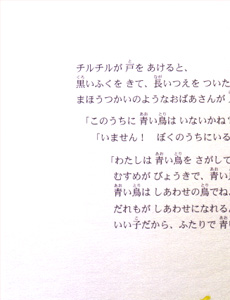 チルチルが 戸を あけると、
黒いふくを きて、長いつえを ついた
まほうつかいのようなおばあさんが
「このうちに 青い鳥は いないかね?
「いません! ぼくのうちにいる
「わたしは 青い鳥を さがして
むすめが びょうきで、青い
青い鳥は しあわせの鳥でね
だれもが しあわせになれる
いい子だから、ふたりで 青